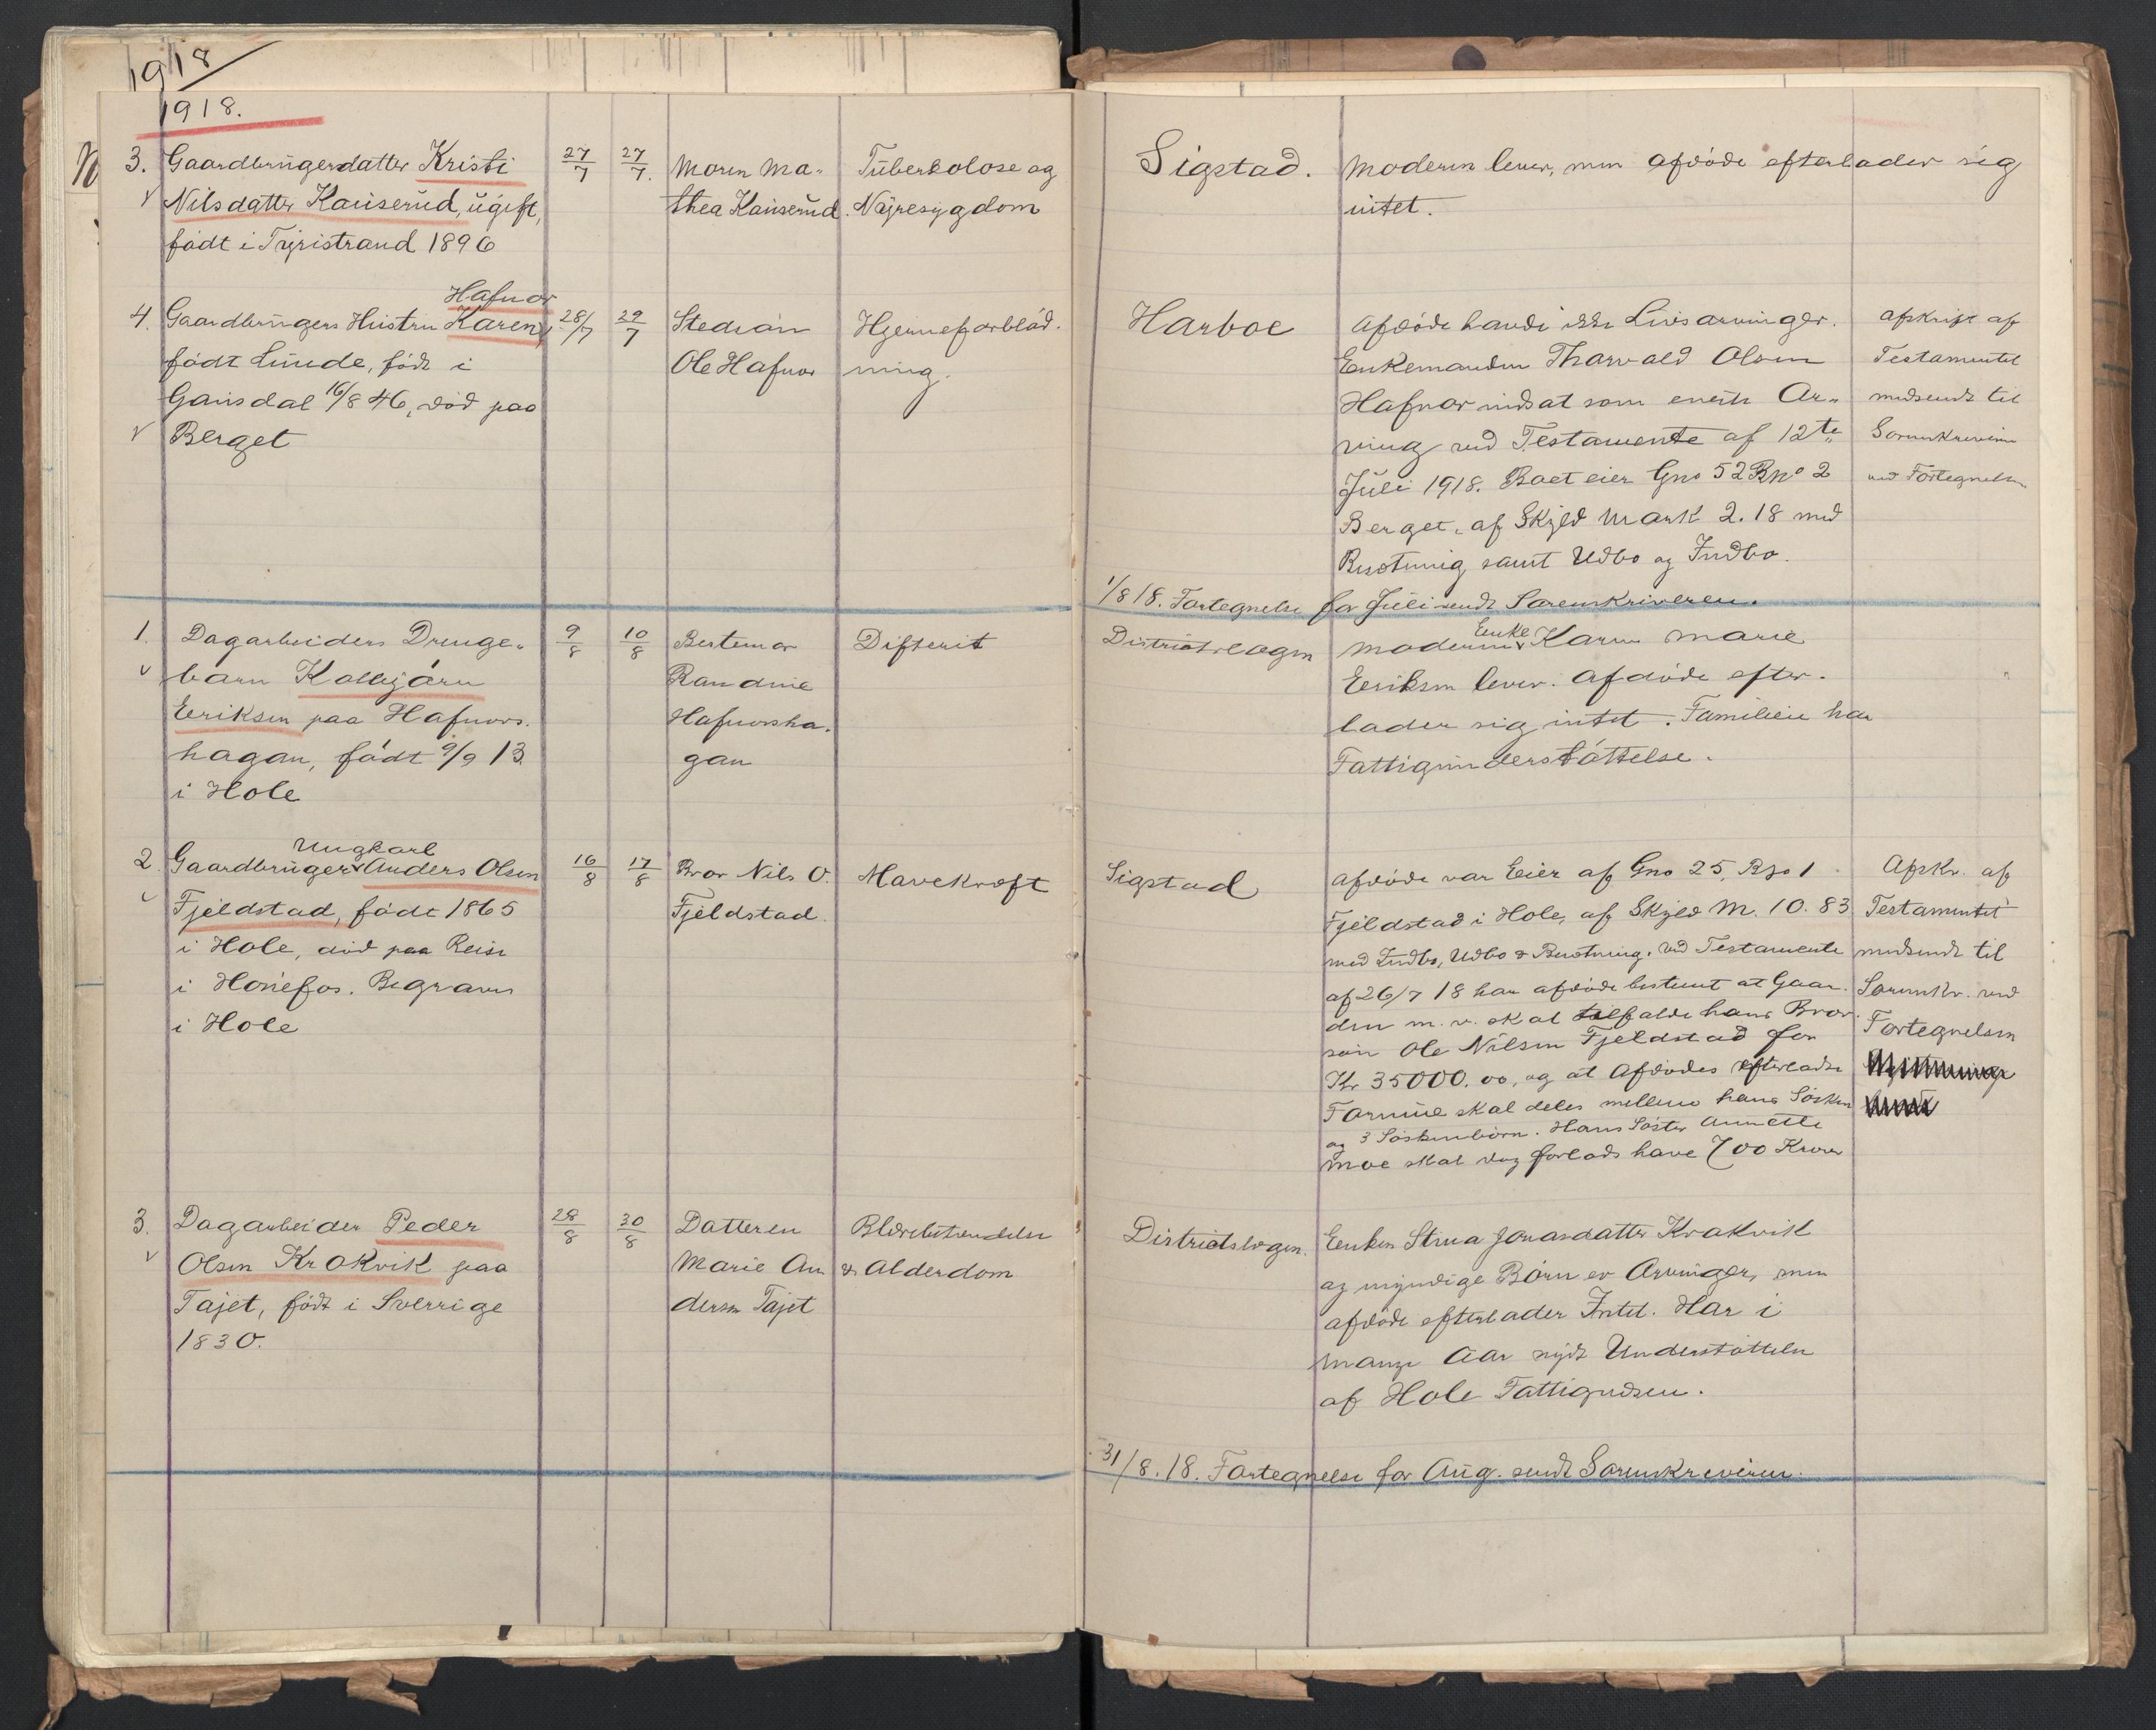 1918
1918.
3. Gaardbrügerdatter Kristi
Nilsdatter Kaüserüd, ügift,
født i Tyristrand 1896
27/7
27/7.
Moren Ma-
thea Kaüserüd.
Tüberkolose og
Nyresygdom
Sigstad.
Moderen lever, men afdøde efterlader sig
intet.
Hafnor
4. Gaardbrügers Hüstru Karen,
født Lünde, født i
Gaüsdal 16/8 46, død paa
Berget
28/7
29/7
Stedsøn
Ole Hafnor
Hjerneforblød-
ning.
Harboe
Afdøde havde ikke Livsarvinger.
Enkemanden Thorvald Olsen
Hafnor indsat som eneste Ar-
ving ved Testamente af 12te
Jüli 1918. Boet eier Gno 52 Bno 2
Berget, af Skyld Mark 2.18 med
Besetning samt Udbo og Indbo.
Afskrift af
Testamentet
medsendt til
Sorenskriveren
ved Fortegnelsen
1/8 18. Fortegnelse for Jüli sendt Sorenskriveren.
1. Dagarbeiders Drenge-
barn Kolbjørn
Eeriksen paa Hafnors-
hagan, født 9/9 13
i Hole
9/8
10/8
Bestemor
Randine
Hafnorsha-
gan
Difterit
Districtslægen
Enke
Moderen Karen Marie
Eeriksen lever. Afdøde efter-
lader sig intet. Familien har
Fattigünderstøttelse.
Ungkarl
2. Gaardbrüger Anders Olsen
Fjeldstad, født 1865
i Hole, død paa Reise
i Hønefos. Begraves
i Hole
16/8
17/8
Bror Nils O.
Fjeldstad.
Mavekræft
Sigstad
Afdøde var Eier af Gno 25, Bno 1
Fjeldstad i Hole, af Skyld M. 10.83
med Indbo, Udbo & Besetning. Ved Testamente
af 26/7 18 har afdøde bestemt at Gaar-
den m.v. skal tilfalde hans Bror-
søn Ole Nilsen Fjeldstad for
Kr 35000.00, og at Afdødes efterladte
Formüe skal deles mellem hans Søsken
og 3 Søskenbørn. Hans Søster Annette
Moe skal dog forlods have 700 Kroner
Afskr. af
Testamentet
medsendt til
Sorenskr. ved
Fortegnelsen
3. Dagarbeider Peder
Olsen Krokvik paa
Tajet, født i Sverrige
1830.
28/8
30/8
Datteren
Marie An
dersen Tajet
Blærebetændelse
& Alderdom
Districtslægen.
Enken Stina Jonasdatter Krokvik
og myndige Børn er Arvinger, men
afdøde efterlader Intet. Har i
mange Aar nydt Understøttelse
af Hole Fattigvæsen.
31/8.18. Fortegnelse for Aüg. sendt Sorenskriveren.